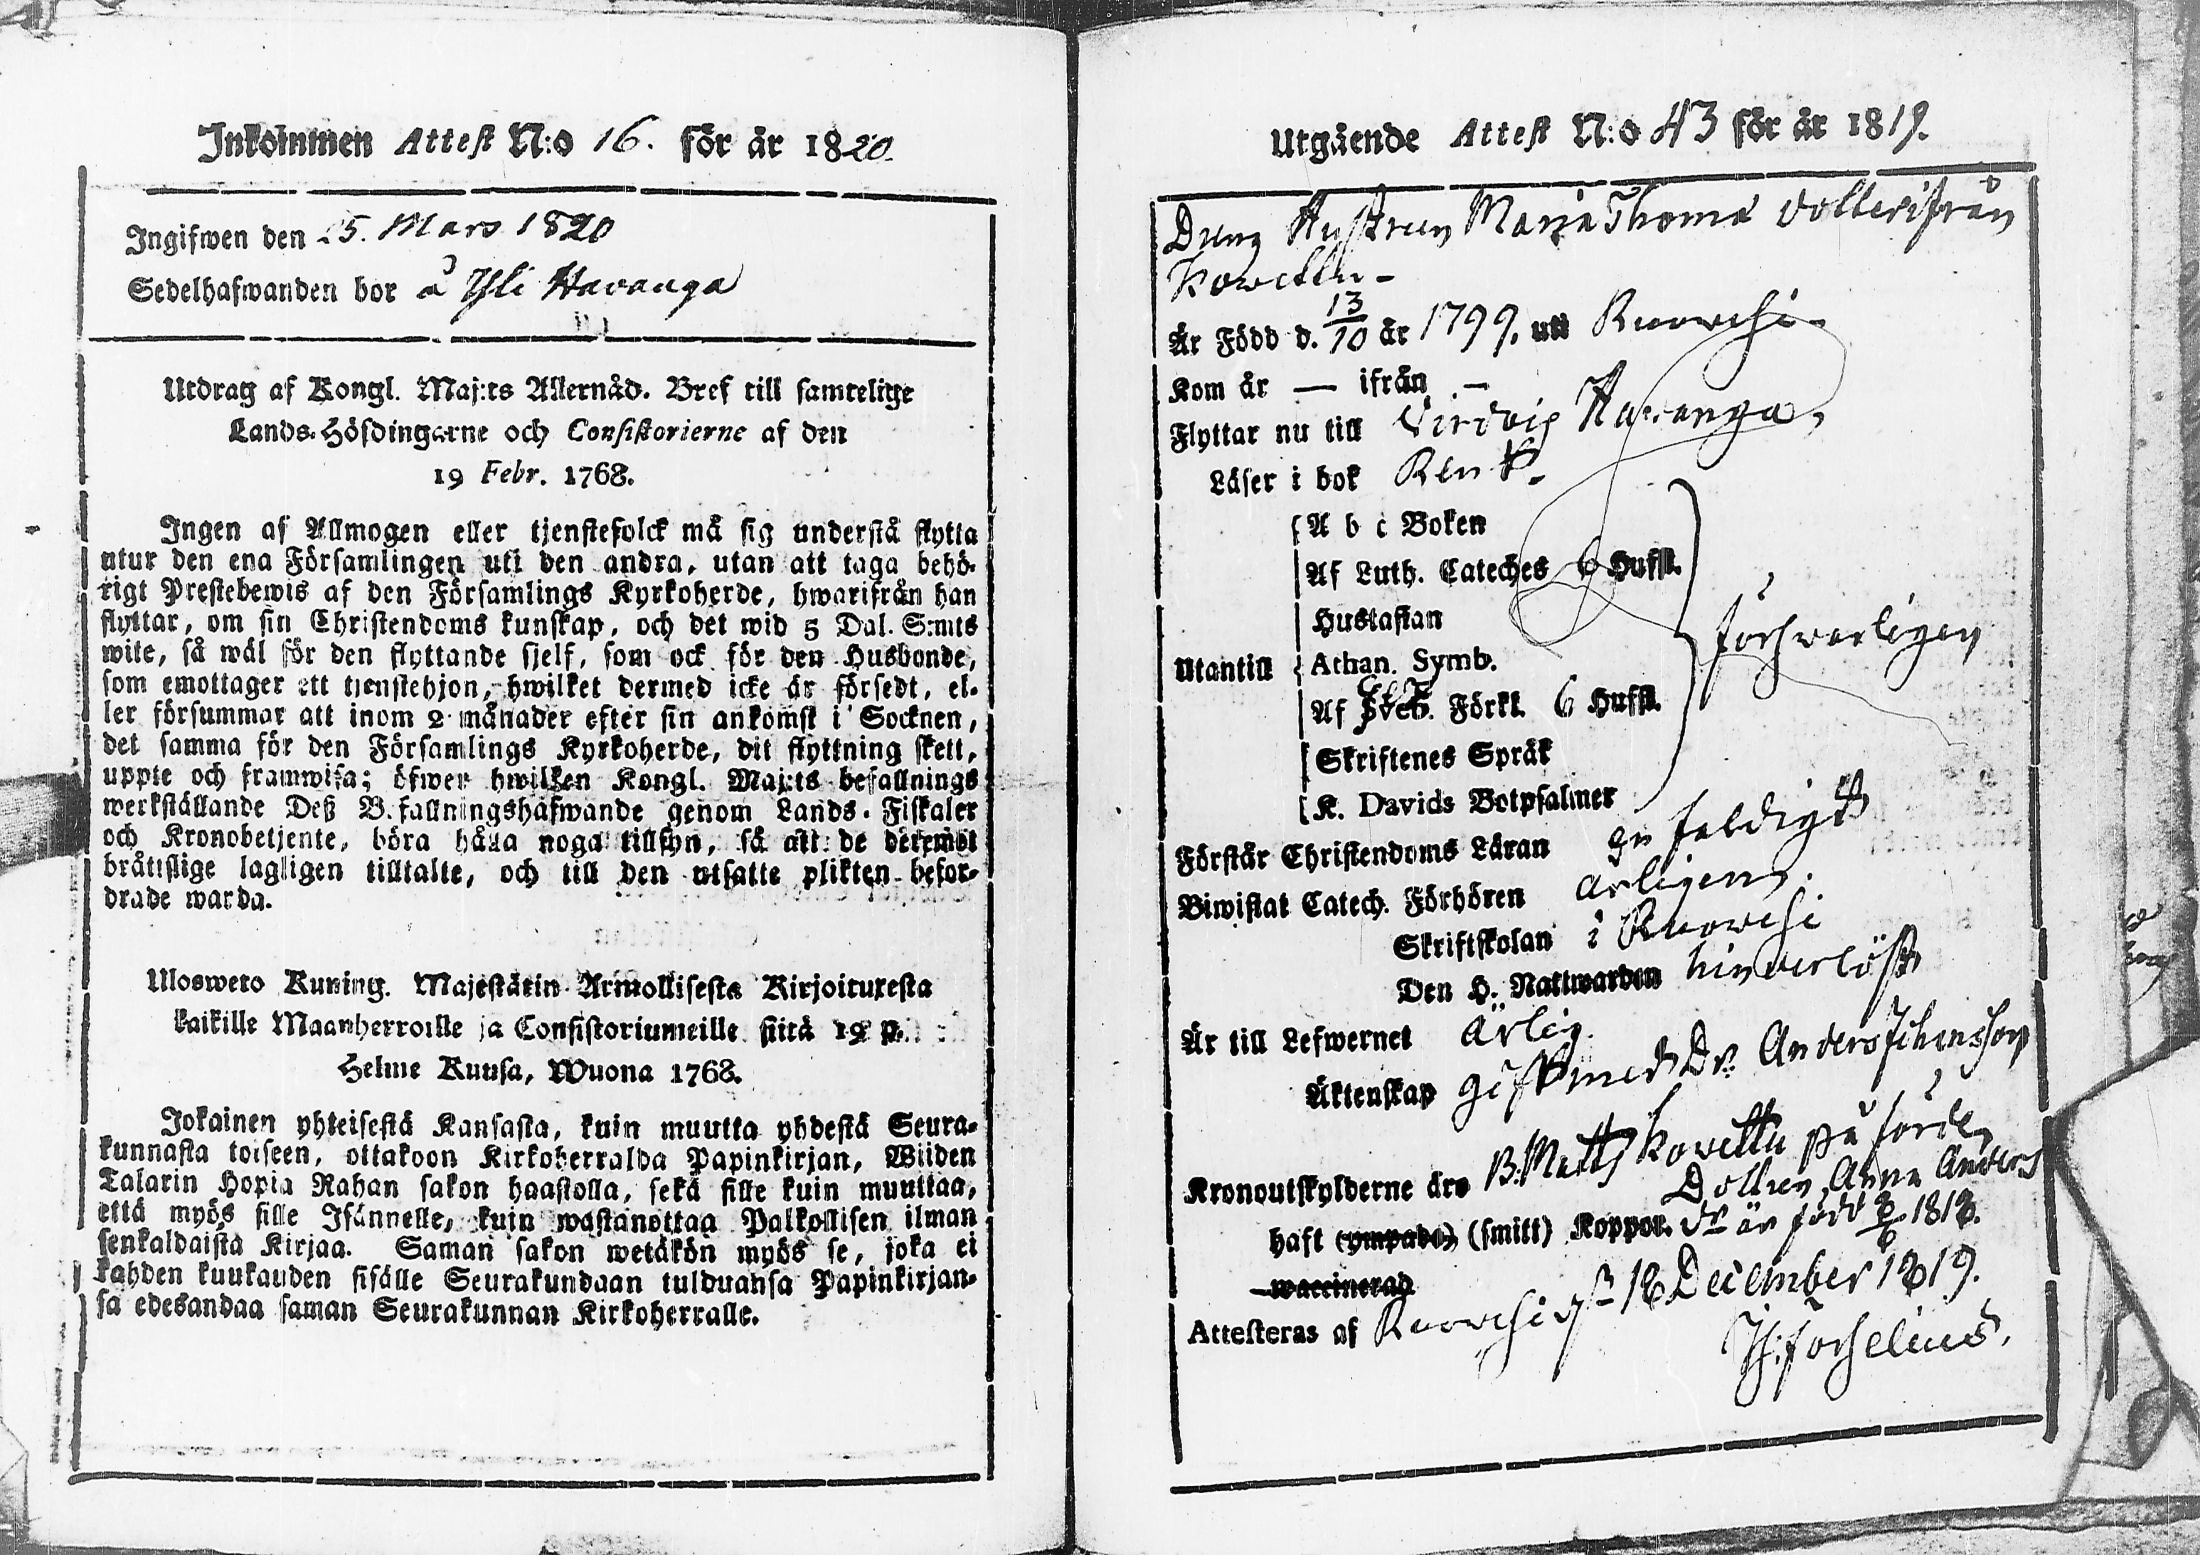 Inkommen Attest N:o 16. för år 1820.
Ingifwen den 25. Mars 1820
Sedelhafwanden bor å Yli Havanga
Utdrag af Kongl. Maj:ts Allernåd. Bref till samtelige
Lands-Höfdingarne och Consistorierne af den
19 Febr. 1768.
Ingen af Allmogen eller tjenstefolck må sig understå flytta
utur den ena Församlingen uti den andra, utan att taga behö-
rigt Prestebewis af den Församlings Kyrkoherde, hwarifrån han
flyttar, om sin Christendoms kunskap, och det wid 5 Dal. S:mts
wite, så wäl för den flyttande sjelf, som ock för den Husbonde,
som emottager ett tjenstehjon, hwilket dermed icke är försedt, el-
ler försummar att inom 2 månader efter sin ankomst i Socknen,
det samma för den Församlings Kyrkoherde, dit flyttning skett,
uppte och framwisa; öfwer hwilken Kongl. Maj:ts befallnings
werkställande Deß B.fallningshafwande genom Lands-Fiskaler
och Kronobetjente, böra hålla noga tillsyn, så att de deremot
bråttslige lagligen tilltalte, och till den utsatte plikten befor-
drade warda.
Ulosweto Kuning. Majestätin Armollisesta Kirjoituxesta
kaikille Maanherroille ja Consistoriumeille siitä 19 p.
Helme Kuusa, Wuona 1768.
Jokainen yhteisestä Kansasta, kuin muutta yhdestä Seura-
kunnasta toiseen, ottakoon Kirkoherralda Papinkirjan, Wiiden
Talarin Hopia Rahan sakon haastolla, sekä sille kuin muuttaa,
että myös sille Isännelle, kuin wastanottaa Palkollisen ilman
senkaldaista Kirjaa. Saman sakon wetäkön myös se, joka ei
kahden kuukauden sisälle Seurakundaan tulduansa Papinkirjan-
sa edesandaa saman Seurakunnan Kirkoherralle.
Utgående Attest N:o 43 för år 1819.
Hustrun Maria Thomæ dotter ifrån
Kowettu -
Är Född d. 13/10 år 1799. uti Ruowesi.
Kom år — ifrån —
Flyttar nu till Virdois Havanga,
Läser i bok Rent.
A b c Boken
Af Luth. Cateches 6 Hufst.
Hustaflan
Utantill Athan. Symb.
Af Sveb. Förkl. 6 Hufst.
försvarligen
Skriftenes Språk
K. Davids Botpsalmer
Förstår Christendoms Läran enfaldigt
Biwistat Catech. Förhören årligen.
Skriftskolan i Ruowesi
Den H. Nattwarden hinderlöst
Är till Lefwernet ärlig.
Äktenskap gift med Dr. Anders Johansson
Kronoutskylderne äro B. Matts Kowettu på förde,
Dottren Anna Anders
haft (ympade) (smitt) Koppor. dr är född 1818.
waccinerad
Attesteras af Ruowesi d. 18 December 1819.